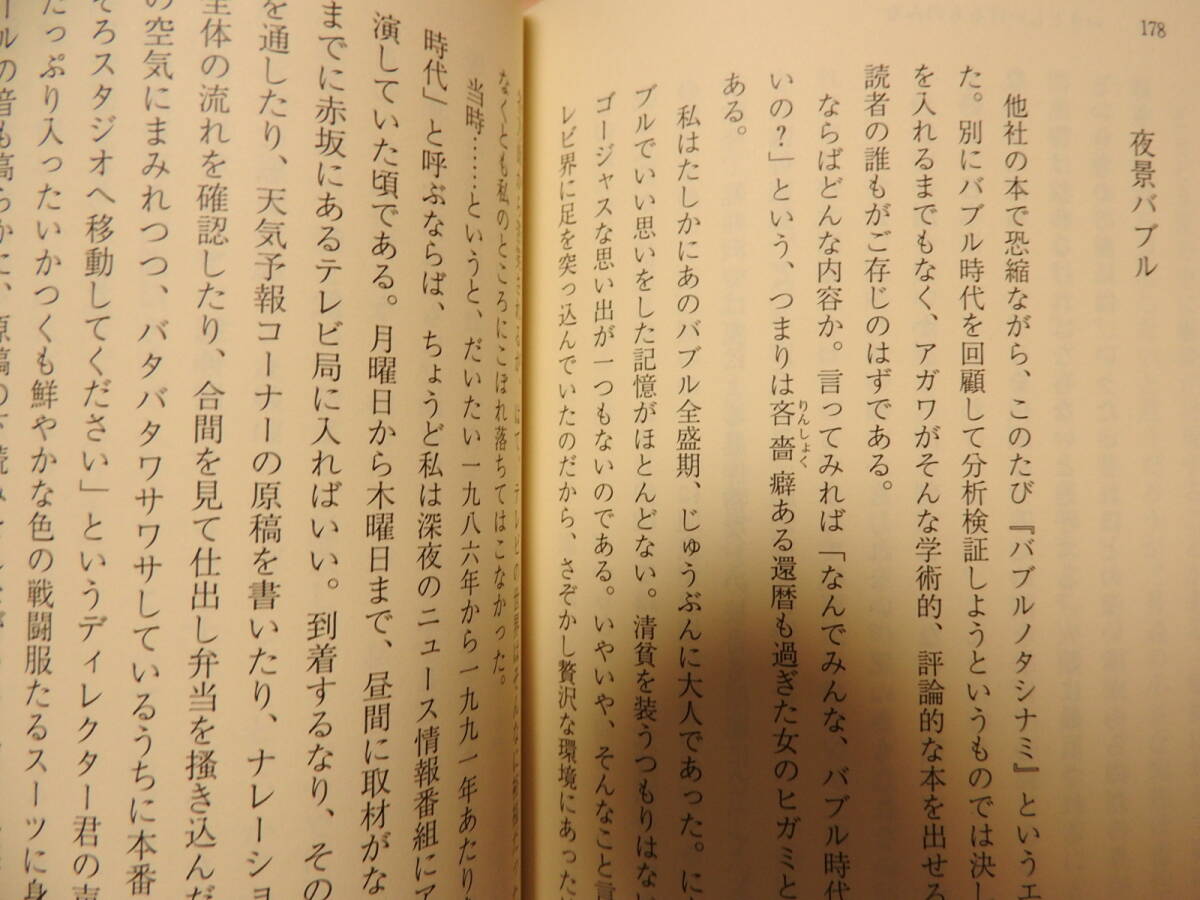 178
夜景バブル
他社の本で恐縮ながら、このたび『バブルノタシナミ』というエ
た。別にバブル時代を回顧して分析検証しようというものでは決し
を入れるまでもなく、アガワがそんな学術的、評論的な本を出せる
読者の誰もがご存じのはずである。
ならばどんな内容か。言ってみれば「なんでみんな、バブル時代
いの?」という、つまりは吝嗇癖ある還暦も過ぎた女のヒガミと
りんしょく
ある。
私はたしかにあのバブル全盛期、じゅうぶんに大人であった。に
ブルでいい思いをした記憶がほとんどない。清貧を装うつもりはな
ゴージャスな思い出が一つもないのである。いやいや、そんなこと言
レビ界に足を突っ込んでいたのだから、さぞかし贅沢な環境にあった
なくとも私のところにこぼれ落ちてはこなかった。
当時……というと、だいたい一九八六年から一九九一年あたり
時代」と呼ぶならば、ちょうど私は深夜のニュース情報番組にア
演していた頃である。月曜日から木曜日まで、昼間に取材がな
までに赤坂にあるテレビ局に入ればいい。到着するなり、その
を通したり、天気予報コーナーの原稿を書いたり、ナレーショ
全体の流れを確認したり、合間を見て仕出し弁当を掻き込んだ
の空気にまみれつつ、バタバタワサワサしているうちに本番
そろスタジオへ移動してください」というディレクター君の声
たっぷり入ったいかつくも鮮やかな色の戦闘服たるスーツに身
ールの音も高らかに、原稿の下読み